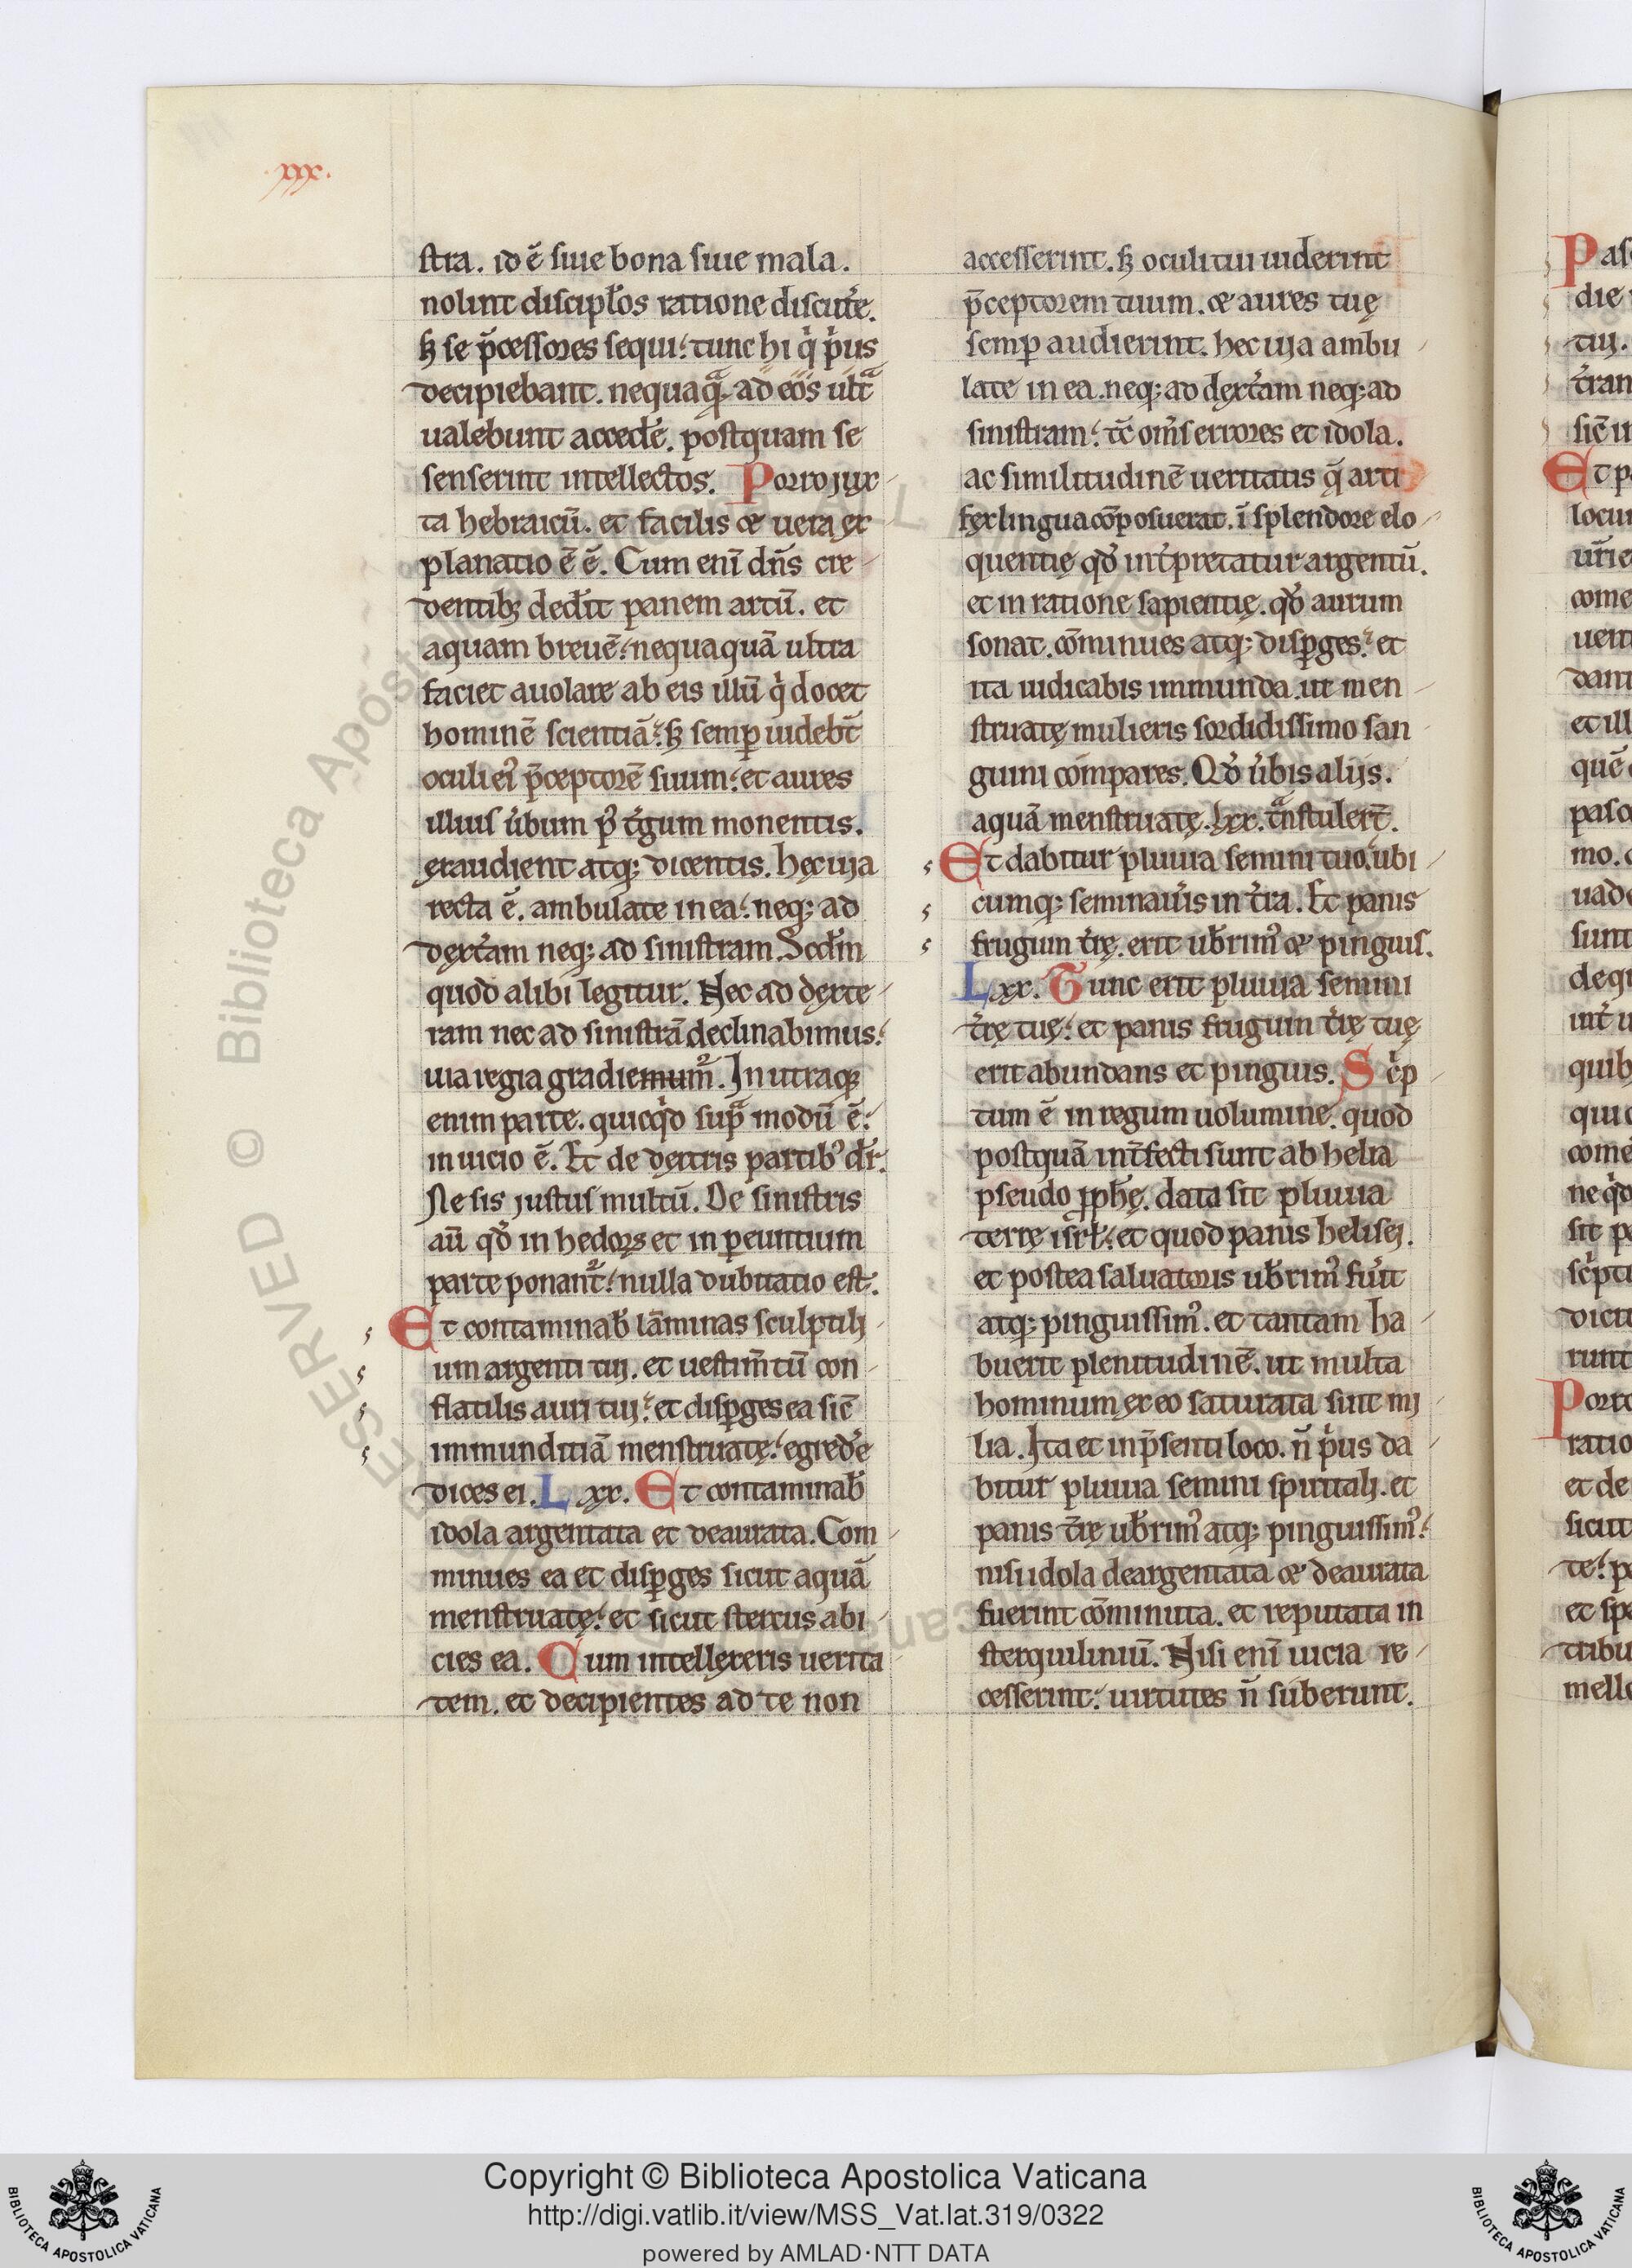 .xxx.
stra. id ẽ siue bona siue mala.
nolunt discipl̃os ratione discut̃e.
sꝫ se p̃cessores sequi. tunc hi q̇ ṗus
decipiebant. nequaqᷓ. ad eos ult̃ᷓ
ualebunt acced̃e. postquam se
senserint intellectos. Porro jux
ta hebraicũ. et facilis et uera ex
planatio ẽ ẽ. Cum eni᷑ dñs cre
dentibꝫ ded̃it panem artũ. et
aquam breuẽ. nequaquã ultra
faciet auolare ab eis illũ q̇ docet
hominẽ scientiã. sꝫ semꝑ uidebt̃
oculi ei᷒ p̃ceptorẽ suum. et aures
illius ũbum p᷒ t̃gum monentis.
exaudient atqꝫ dicentis. hęc uia
recta ẽ. ambulate in ea. neqꝫ ad
dext̃am neqꝫ ad sinistram. Scd̃m
quod alibi legitur. Nec ad dexte
ram nec ad sinistrã declinabimus.
uia regia gradiemum̃. In utraqꝫ
enim parte. quicqͥd supᷓ modũ ẽ.
in uicio ẽ. Et de dextris partib᷒ dr̃.
Ne sis justus multũ. De sinistris
aũ qd̃ in hedoꝝ et in pereuntium
parte ponant̃. nulla dubitatio est.
Et contaminab̃ lãminas sculptilj
um argenti tuj. et uestim̃tũ con
flatilis auri tuj. et disꝑges ea sic̃
immunditiã menstruatę. egred̃e
dices ei. Lxx. Et contaminab̃
idola argentata et deaurata. Com
minues ea et disꝑges sicut aquã
menstruatę. et sicut stercus abi
cies ea. Cum intellexeris uerita
tem. et decipientes ad te non
accesserint. sꝫ oculi tui uiderint
p̃ceptorem tuum. et aures tuę
semꝑ audierint. hec uia ambu
late in ea. neqꝫ ad dext̃am neqꝫ ad
sinistram. tc̃ om̃s errores et idola.
ac similitudinẽ ueritatis qᷓ arti
fex lingua cõposuerat. ĩ splendore elo
quentię qd̃ int̃pretatur argentũ.
et in ratione sapientię. qd̃ aurum
sonat. cõminues atqꝫ disꝑges. et
ita iudicabis immunda. ut men
struatę mulieris sordidissimo san
guini compares. Qd̃ ũbis alijs.
aquã menstruatę. lxx. tᷓnstulert̃.
Et dabitur pluuia semini tuo. ubi
cumqꝫ seminau̾is in t̃ra. Et panis
frugum t̃rę. erit ub̃rim᷒ et pinguis.
Lxx. Tunc erit pluuia semini
t̃rę tuę. et panis frugum t̃rę tuę
erit abundans et pinguis. Sc̃p
tum ẽ in regum uolumine. quod
postquã int̃fecti sunt ab helia
pseudo ꝓph̃ę. data sit pluuia
terrę isrl̃. et quod panis helisej.
et postea saluatoris ub̃rim᷒ fũit
atqꝫ pinguissim᷒. et tantam ha
buerit plenitudinẽ. ut multa
hominum ex eo saturata sint mj
lia. Ita et in p̃senti loco. ñ ṗus da
bitur pluuia semini spiritalj. et
panis t̃rę ub̃rim᷒ atqꝫ pinguissim᷒.
nisi idola deargentata et deaurata
fuerint cõminuta. et reputata in
sterquiliniũ. Nisi eni᷑ uicia re
cesserint. uirtutes ñ suberunt.
Copyright © Biblioteca Apostolica Vaticana
http://digi.vatlib.it/view/MSS_Vat.lat.319/0322
powered by AMLAD·NTT DATA
BIBLIOTECA APOSTOLICA VATICANA
BIBLIOTECA APOSTOLICA VATICANA